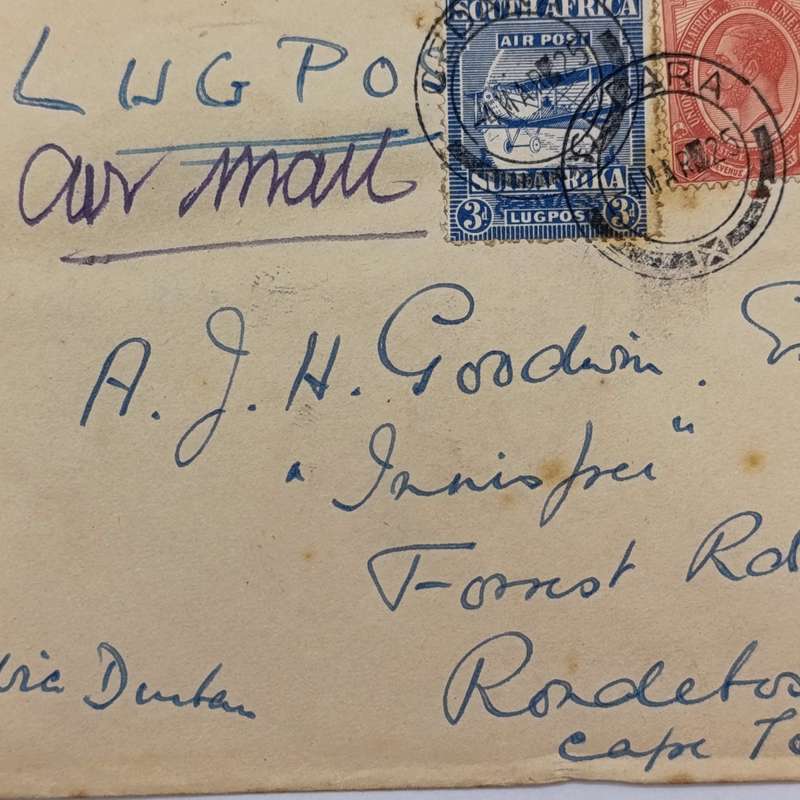 LUGPO
air mail
SOUTH AFRICA
AIR POST
SUID AFRIKA
3d LUGPOST 3d
REVENUE
4 MAR 25
4 MAR 25
A. J. H. Goodwin. E
"Innisfrei"
Forrest Rd
Rondebo
Cape To
via Durban